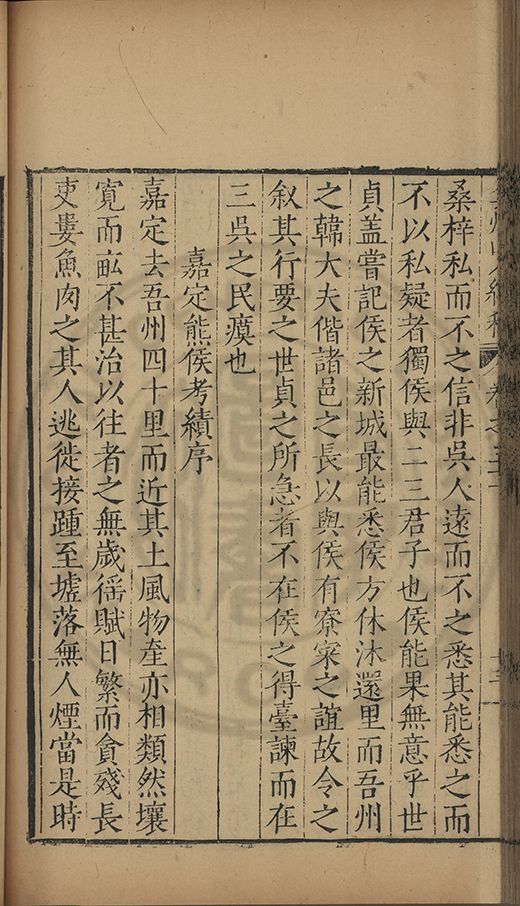 桑梓私而不之信非吳人遠而不之悉其能悉之而
不以私疑者獨侯與二三君子也侯能果無意乎世
貞蓋嘗記侯之新城最能悉侯方休沐還里而吾州
之韓大夫偕諸邑之長以與侯有寮寀之誼故令之
叙其行要之世貞之所急者不在侯之得臺諫而在
三吳之民瘼也
嘉定熊侯考績序
嘉定去吾州四十里而近其土風物產亦相類然壤
寬而畝不甚治以往者之無歲徭賦日繁而貪殘長
吏婁魚肉之其人逃徙接踵至墟落無人煙當是時